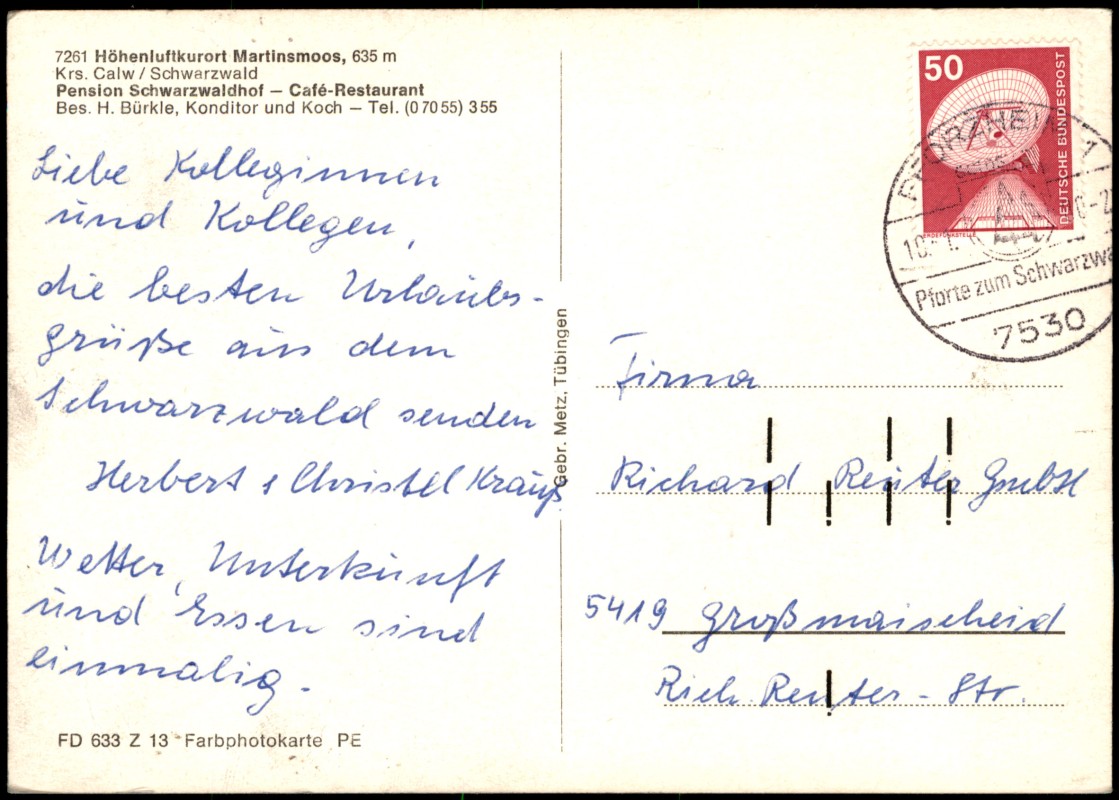 7261 Höhenluftkurort Martinsmoos, 635 m
Krs. Calw / Schwarzwald
Pension Schwarzwaldhof – Café-Restaurant
Bes. H. Bürkle, Konditor und Koch – Tel. (0 70 55) 3 55
Liebe Kolleginnen
und Kollegen,
die besten Urlaubs-
grüße aus dem
Schwarzwald senden
Herbert & Christel Krauß
Wetter, Unterkunft
und Essen sind
einmalig.
FD 633 Z 13 Farbphotokarte PE
Gebr. Metz, Tübingen
50
DEUTSCHE BUNDESPOST
ERDEFUNKSTELLE
PFORZHEIM 1
Pforte zum Schwarzwa
7530
Firma
Richard Reuter GmbH
5419 Großmaischeid
Rich. Reuter-Str.